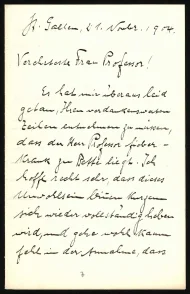 St. Gallen, 21. Novbr. 1904.
Verehrteste Frau Professor!
Es hat mir überaus leid
getan, Ihren verdankenswerten
Zeilen entnehmen zu müssen,
dass der Herr Professor fieber-
krank zu Bette liegt. Ich
hoffe recht sehr, dass dieses
Unwohlsein binnen kurzem
sich wieder vollständig heben
wird, und gehe wohl kaum
fehl in der Annahme, dass